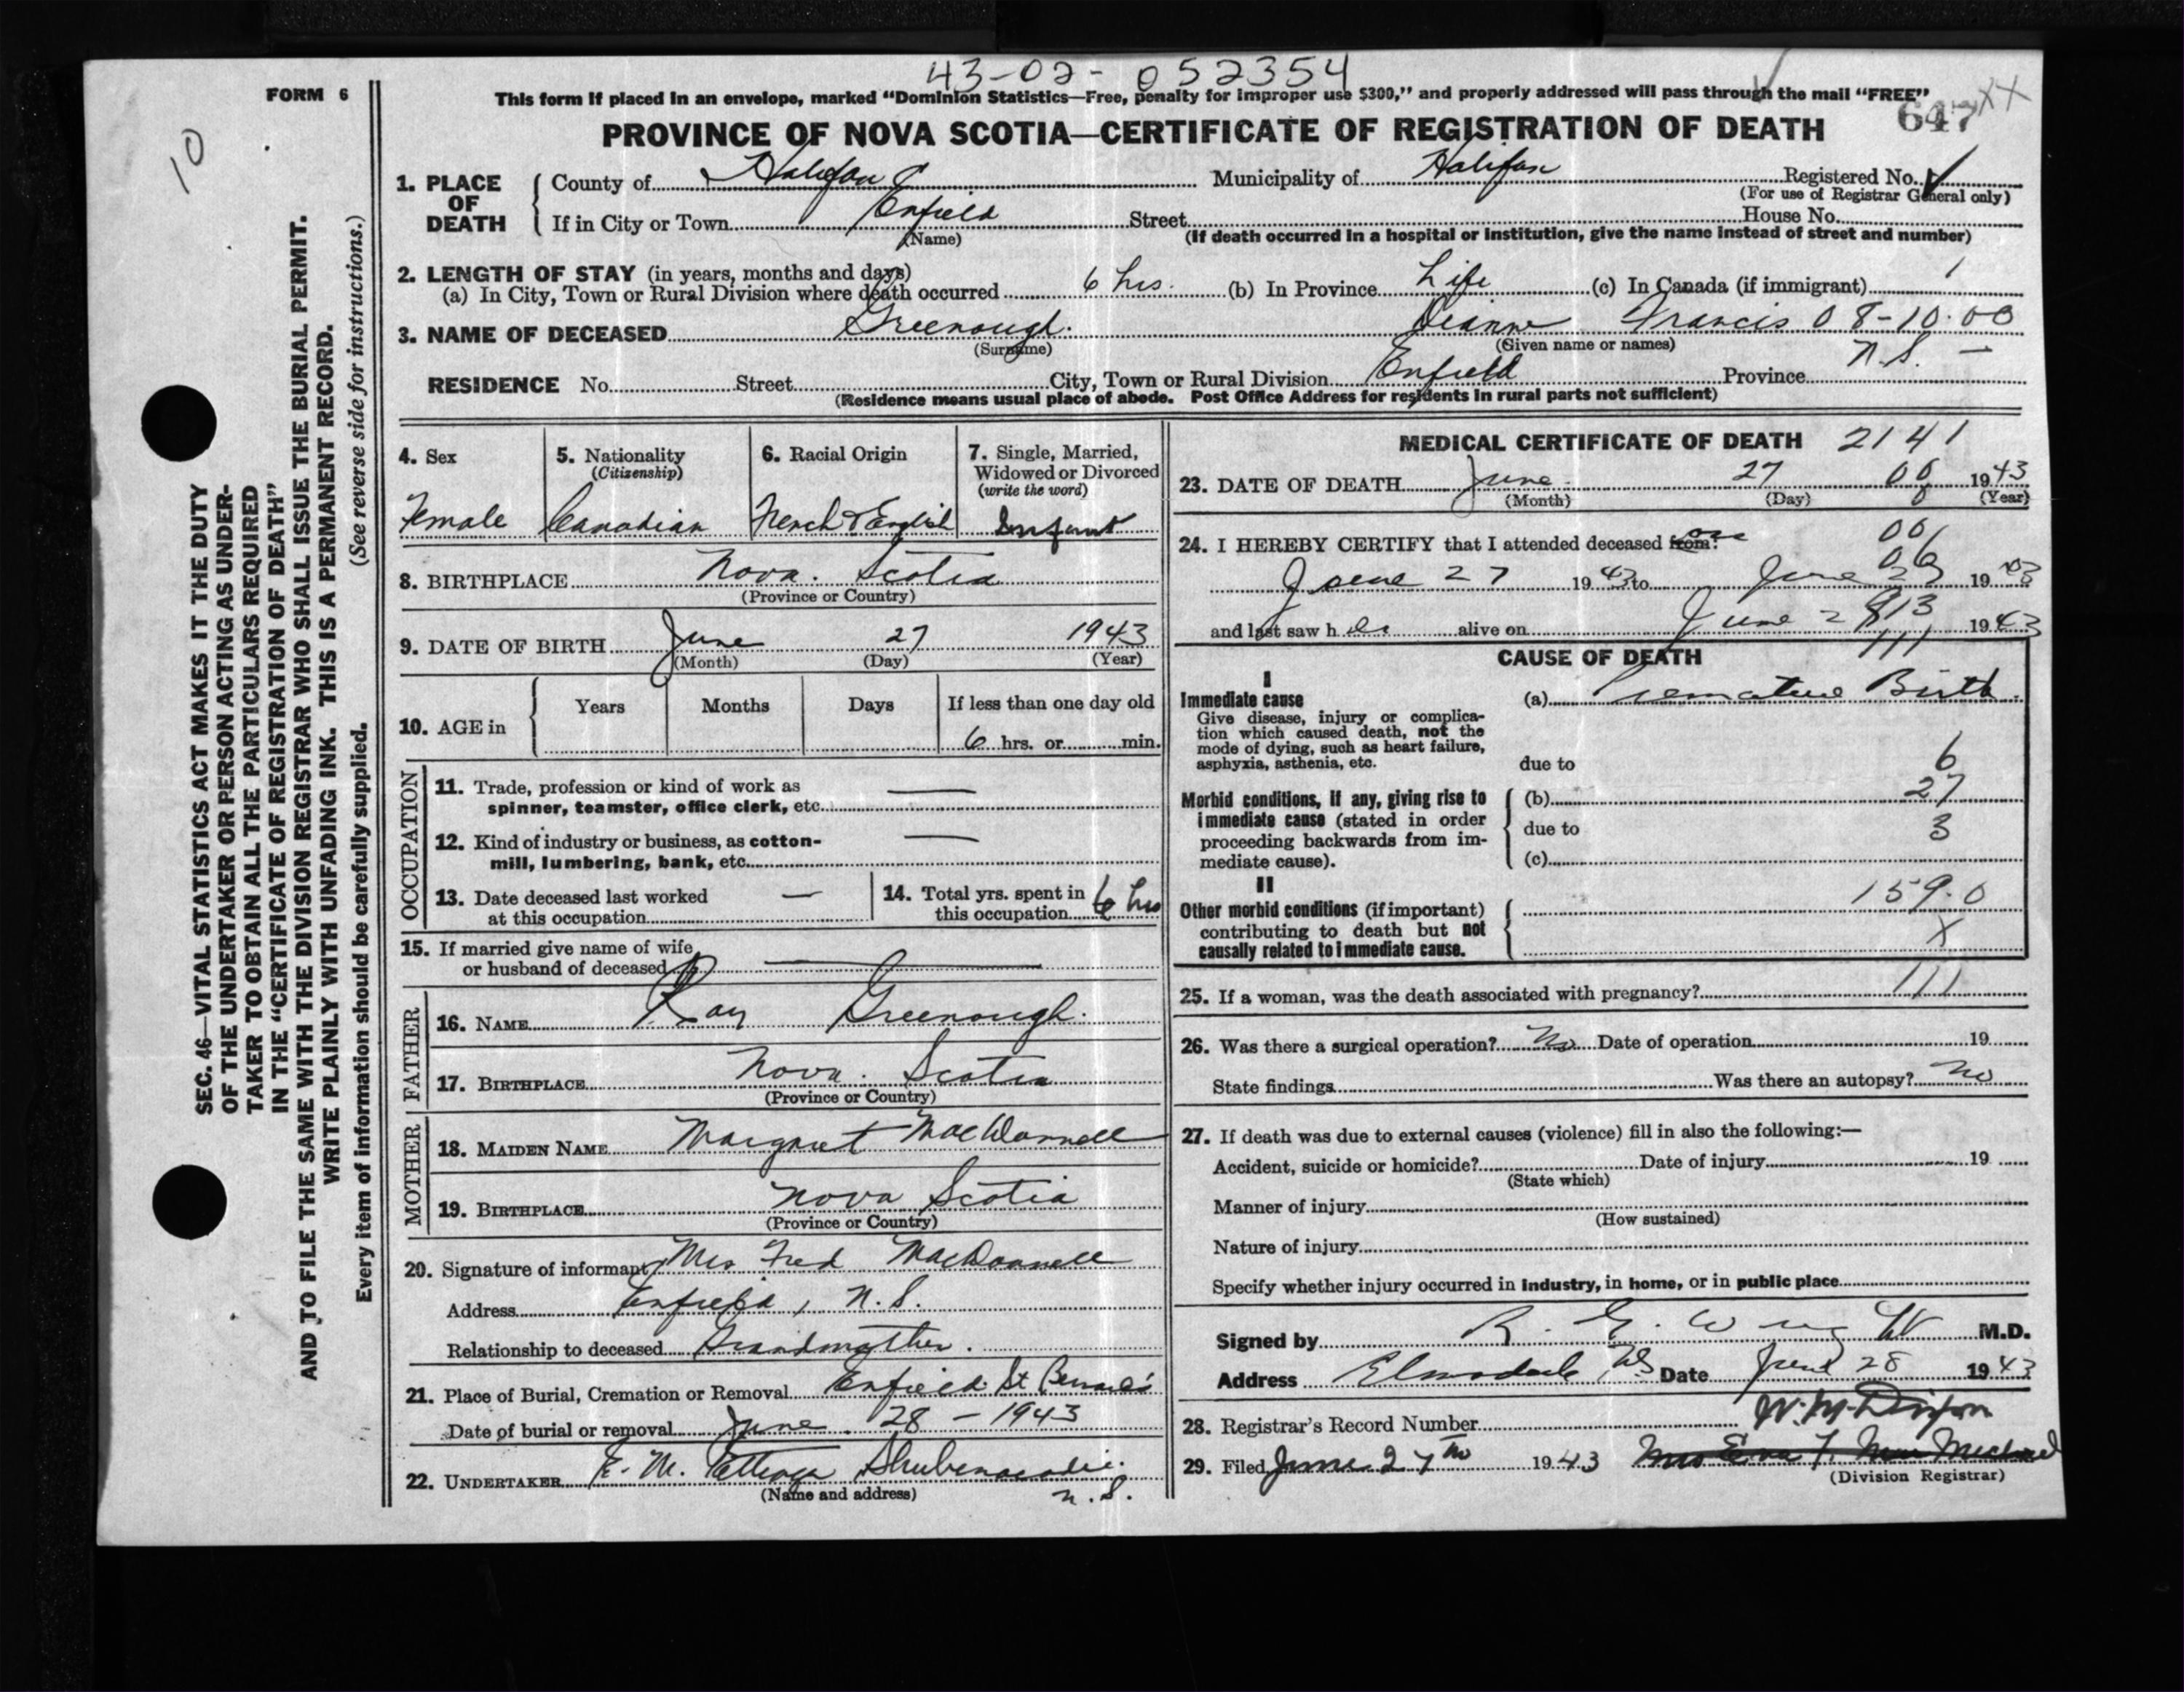 43-02-052354
FORM 6
This form if placed in an envelope, marked "Dominion Statistics—Free, penalty for improper use $300," and properly addressed will pass through the mail "FREE"
10
647 XX
PROVINCE OF NOVA SCOTIA—CERTIFICATE OF REGISTRATION OF DEATH
1. PLACE OF DEATH
County of Halifax Municipality of Halifax Registered No. ✓
(For use of Registrar General only)
If in City or Town Enfield Street House No.
(Name) (If death occurred in a hospital or institution, give the name instead of street and number)
2. LENGTH OF STAY (in years, months and days)
(a) In City, Town or Rural Division where death occurred 6 hrs. (b) In Province Life (c) In Canada (if immigrant) 1
3. NAME OF DECEASED Greenough. Dianne Francis 08-10.00
(Surname) (Given name or names)
RESIDENCE No. Street City, Town or Rural Division Enfield Province N.S. —
(Residence means usual place of abode. Post Office Address for residents in rural parts not sufficient)
4. Sex
Female
5. Nationality
(Citizenship)
Canadian
6. Racial Origin
French & English
7. Single, Married,
Widowed or Divorced
(write the word)
Infant
8. BIRTHPLACE Nova. Scotia
(Province or Country)
9. DATE OF BIRTH June 27 1943
(Month) (Day) (Year)
10. AGE in
Years Months Days If less than one day old
6 hrs. or min.
OCCUPATION
11. Trade, profession or kind of work as
spinner, teamster, office clerk, etc. —
12. Kind of industry or business, as cotton-
mill, lumbering, bank, etc. —
13. Date deceased last worked
at this occupation —
14. Total yrs. spent in
this occupation 6 hrs
15. If married give name of wife
or husband of deceased —
FATHER
16. NAME Ray Greenough.
17. BIRTHPLACE Nova. Scotia
(Province or Country)
MOTHER
18. MAIDEN NAME Margaret MacDonnell
19. BIRTHPLACE Nova Scotia
(Province or Country)
20. Signature of informant Mrs Fred MacDonnell
Address Enfield, N.S.
Relationship to deceased Grandmother.
21. Place of Burial, Cremation or Removal Enfield St Bernard's
Date of burial or removal June 28 - 1943
22. UNDERTAKER E. M. Shubenacadie.
(Name and address) N.S.
MEDICAL CERTIFICATE OF DEATH 2141
23. DATE OF DEATH June 27 00 1943
(Month) (Day) (Year)
24. I HEREBY CERTIFY that I attended deceased from: 00
06
June 27 1943 to June 1943
and last saw her alive on June 28 1943
813
111
CAUSE OF DEATH
I
Immediate cause
Give disease, injury or complica-
tion which caused death, not the
mode of dying, such as heart failure,
asphyxia, asthenia, etc.
(a) Premature Birth.
due to 6
Morbid conditions, if any, giving rise to
immediate cause (stated in order
proceeding backwards from im-
mediate cause).
(b) 27
due to 3
(c)
II
Other morbid conditions (if important)
contributing to death but not
causally related to immediate cause.
159.0
X
25. If a woman, was the death associated with pregnancy? 111
26. Was there a surgical operation? No Date of operation 19
State findings Was there an autopsy? No
27. If death was due to external causes (violence) fill in also the following:—
Accident, suicide or homicide? Date of injury 19
(State which)
Manner of injury
(How sustained)
Nature of injury
Specify whether injury occurred in industry, in home, or in public place
Signed by R. G. M.D.
Address Elmsdale, NS Date June 28 1943
28. Registrar's Record Number
29. Filed June 27th 1943 Mrs Eva F. MacMichael
(Division Registrar)
SEC. 46—VITAL STATISTICS ACT MAKES IT THE DUTY
OF THE UNDERTAKER OR PERSON ACTING AS UNDER-
TAKER TO OBTAIN ALL THE PARTICULARS REQUIRED
IN THE "CERTIFICATE OF REGISTRATION OF DEATH"
AND TO FILE THE SAME WITH THE DIVISION REGISTRAR WHO SHALL ISSUE THE BURIAL PERMIT.
WRITE PLAINLY WITH UNFADING INK. THIS IS A PERMANENT RECORD.
Every item of information should be carefully supplied. (See reverse side for instructions.)